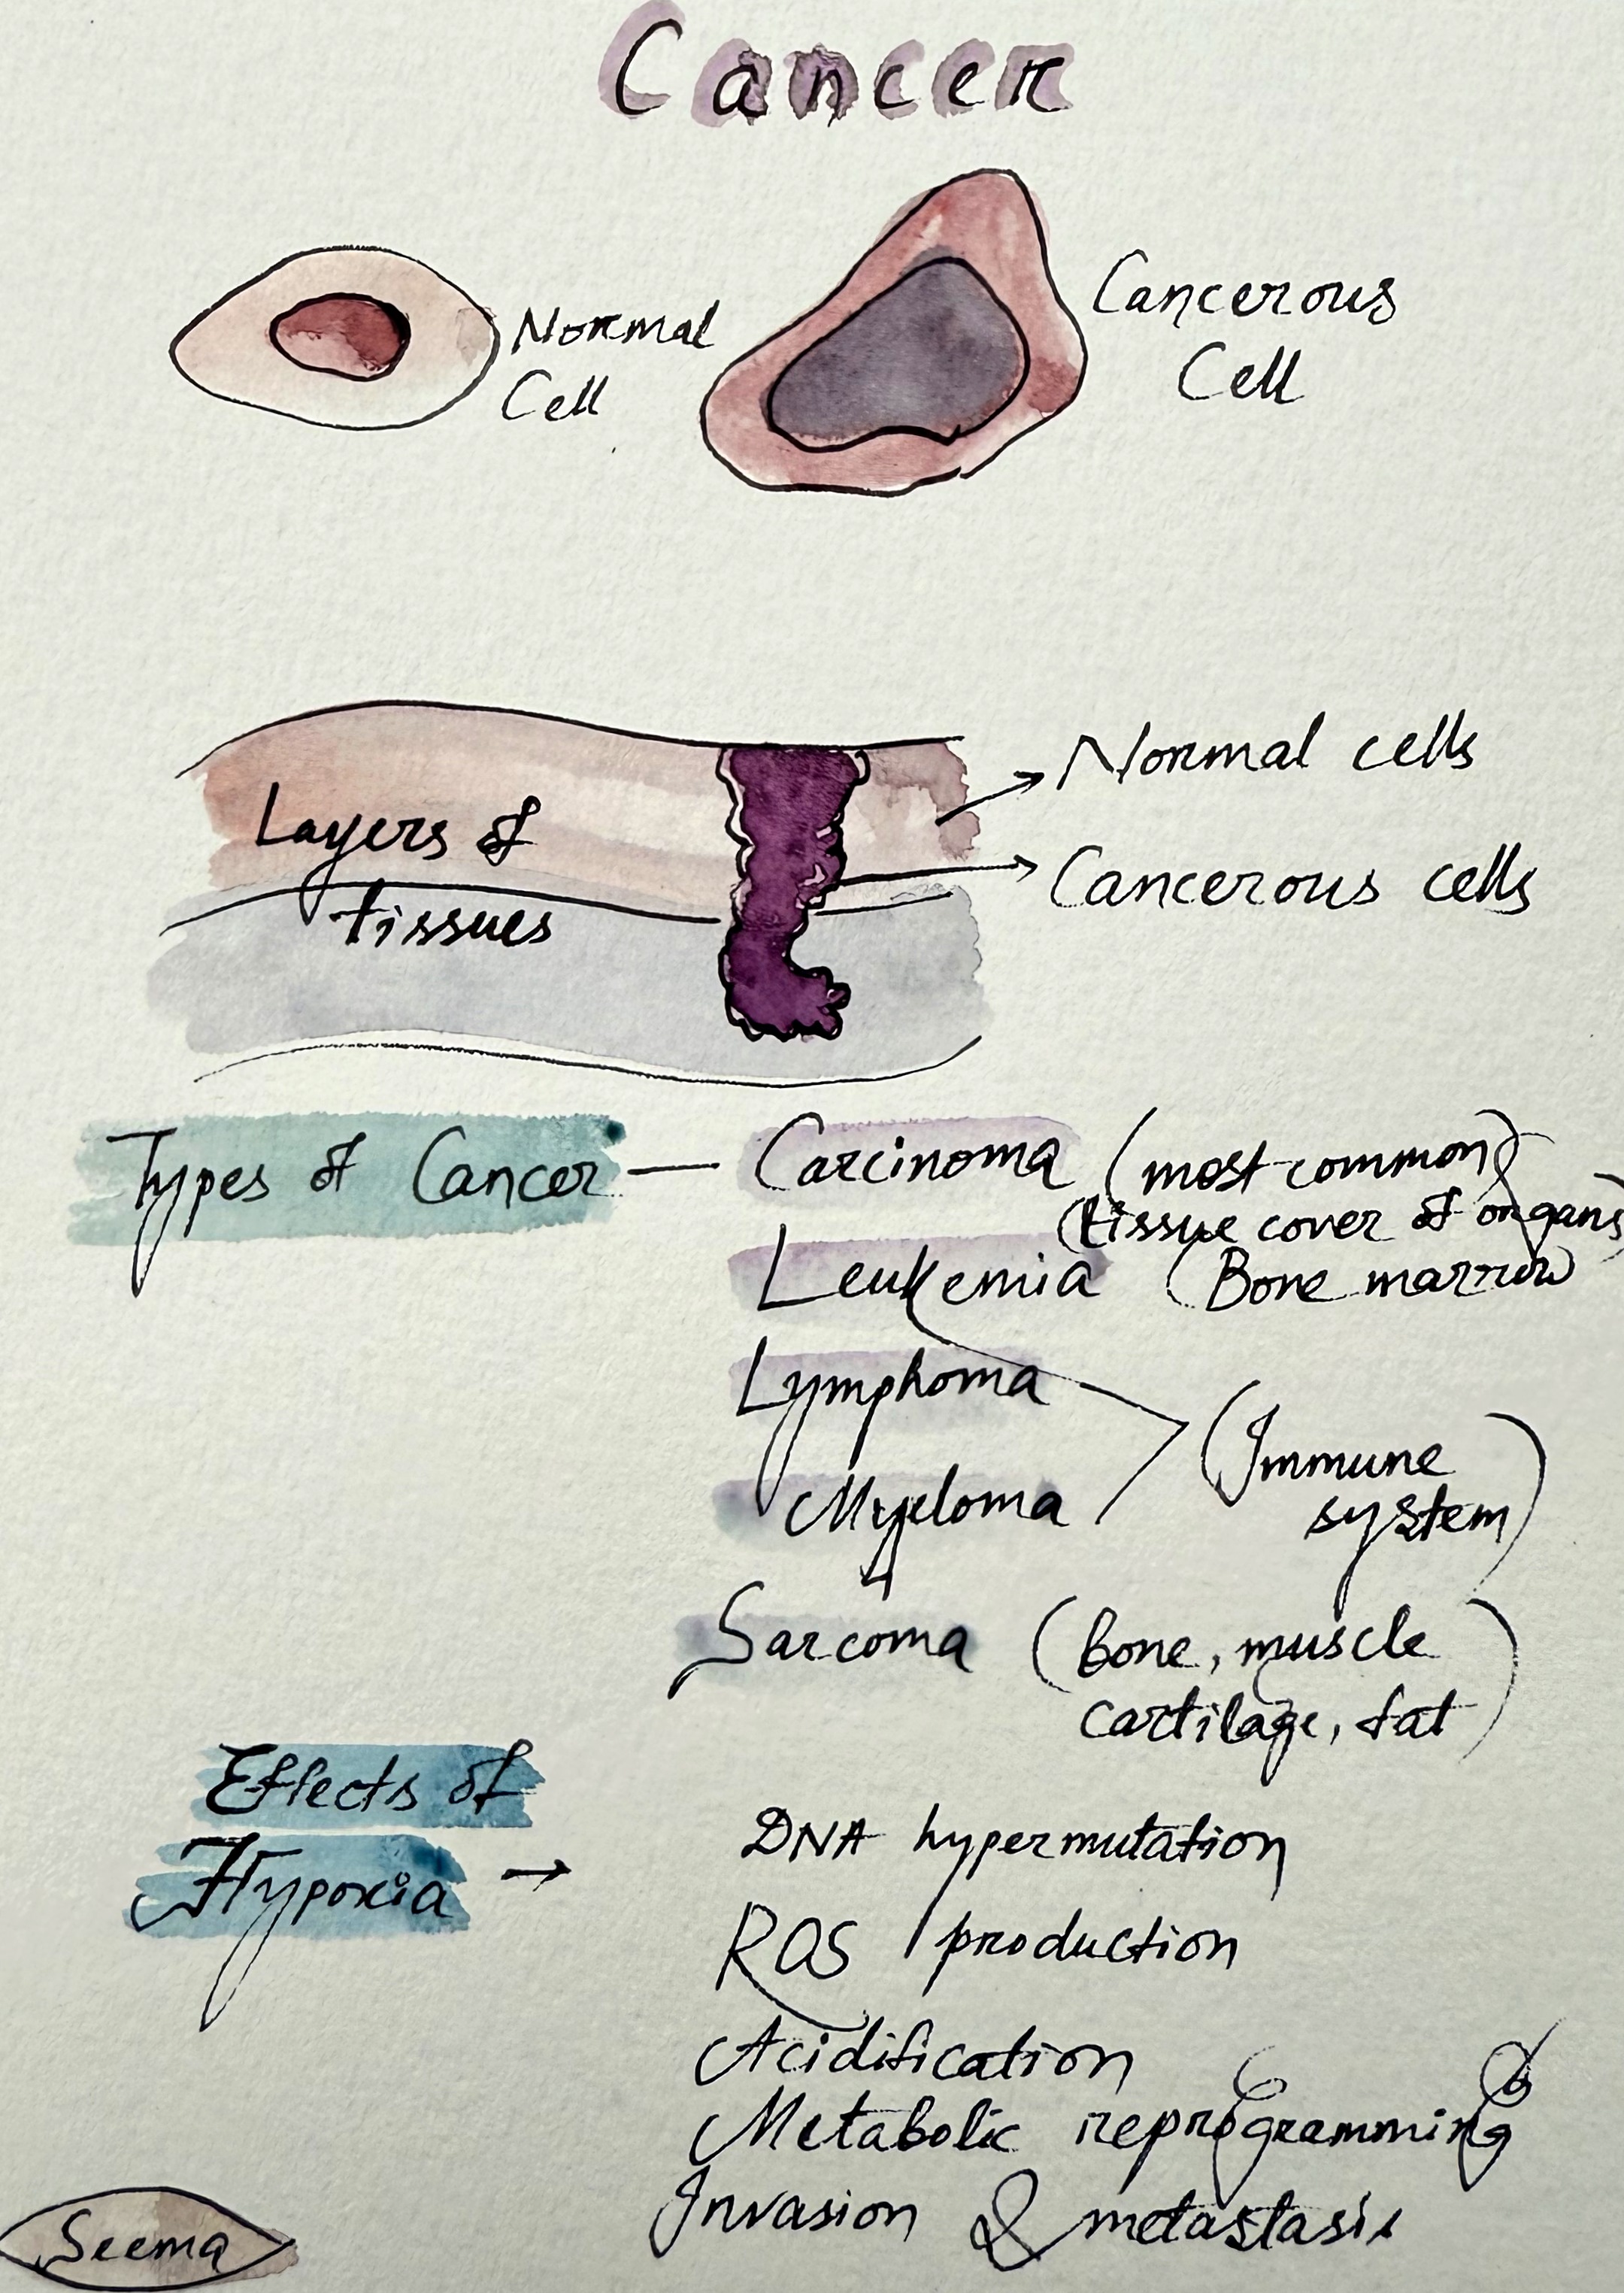 Cancer
Normal
Cell
Cancerous
Cell
Layers of
tissues
Normal cells
Cancerous cells
Types of Cancer — Carcinoma (most common)
(tissue cover of organs)
Leukemia (Bone marrow)
Lymphoma
Myeloma
(Immune
system)
Sarcoma (bone, muscle
cartilage, fat)
Effects of
Hypoxia →
DNA hypermutation
ROS production
Acidification
Metabolic reprogramming
Invasion & metastasis
Seema